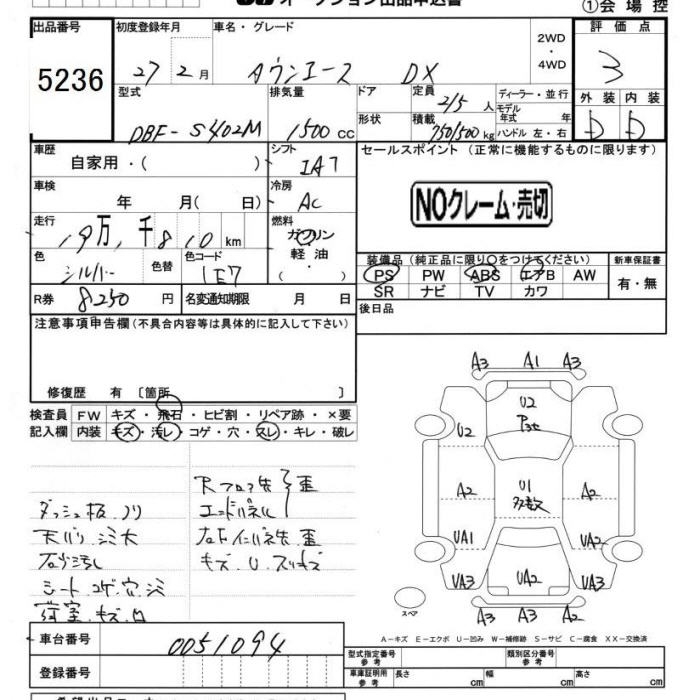 オークション出品申込書
①会場控
出品番号 5236
初度登録年月 27年 2月
車名・グレード タウンエース DX
2WD・4WD
評価点 3
型式 DBF-S402M
排気量 1500 cc
ドア
形状
定員 2/5 人
積載 750/500 kg
ディーラー・並行
モデル年式 年
ハンドル 左・右
外装 D
内装 D
車歴 自家用・( )
シフト IA7
セールスポイント (正常に機能するものに限ります)
車検 年 月( 日)
冷房 AC
NOクレーム・売切
走行 19万,千810 km
燃料 ガソリン 軽油・( )
色 シルバー
色替
色コード 1E7
装備品 (純正品に限り○をつけてください)
新車保証書
PS PW ABS エアB AW
SR ナビ TV カワ
有・無
R券 8250 円
名変通知期限 月 日
後日品
注意事項申告欄 (不具合内容等は具体的に記入して下さい)
修復歴 有 〔箇所 〕
検査員記入欄
FW キズ・飛石・ヒビ割・リペア跡・×要
内装 キズ・汚レ・コゲ・穴・スレ・キレ・破レ
ダッシュ板ノリ
天バリ シミ大
シート コゲ穴シミ
荷室 キズ 凹
Rフロア先
エンドパネル
歪
キズ U
A3 A1 A3
U2
U2
A2
U1 多数
A2
UA1
UA2
UA3
UA2
UA3
A3 A3 A3
スペア
A-キズ E-エクボ U-凹み W-補修跡 S-サビ C-腐食 XX-交換済
車台番号 0051094
登録番号
型式指定番号 参考
類別区分番号 参考
車庫証明用 参考
長さ cm
幅 cm
高さ cm